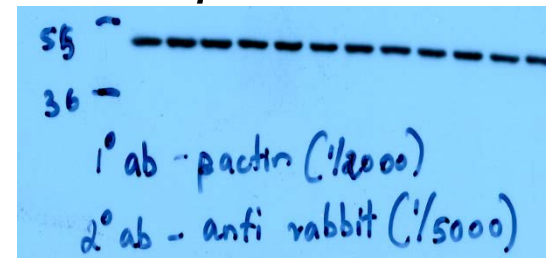 55
36
1° ab - βactin (1/2000)
2° ab - anti rabbit (1/5000)